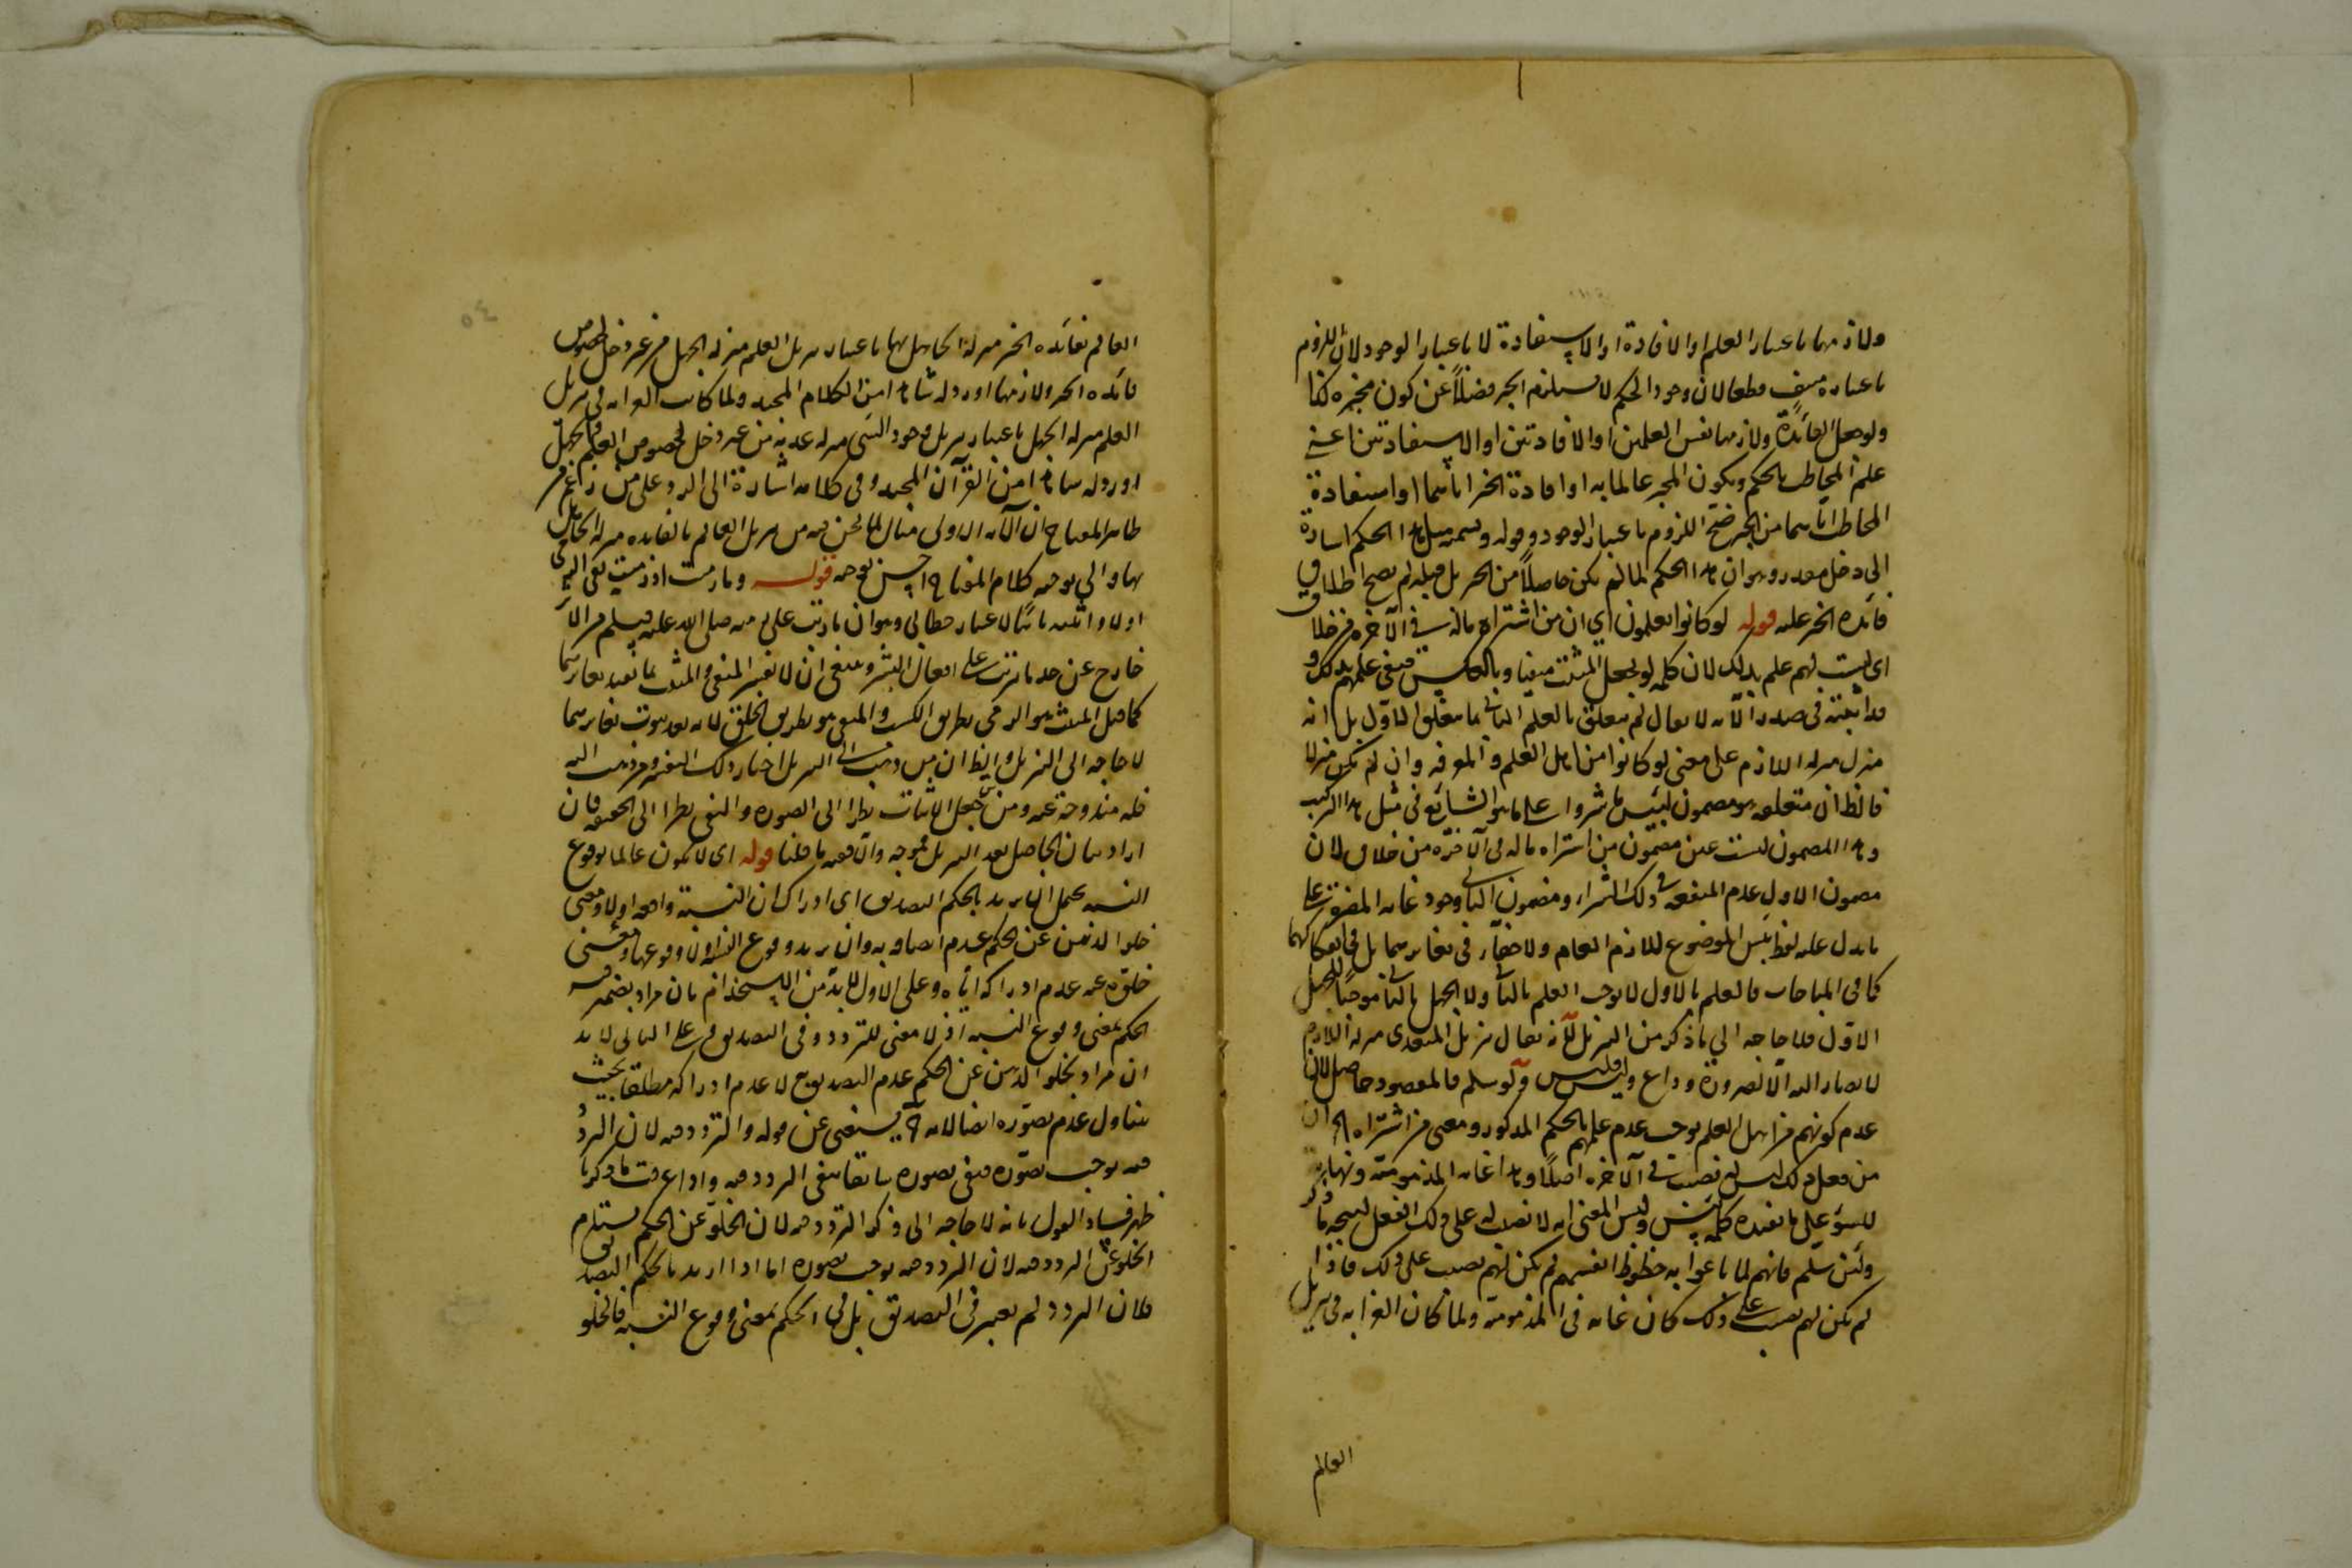 ولازمها باعتبار العلم او الافادة او الاستفادة لا باعتبار الوجود لان اللزوم
باعتباره منتف قطعا لان وجود الحكم لا يستلزم الخبر فضلاً عن كون مخبره كذا
ولو جعل الفائدة ولازمها نفس العلمين او الافادتين او الاستفادتين اعني
علم المخاطب بالحكم وبكون المخبر عالما به او افادة الخبر اياهما او استفادة
المخاطب اياهما من الخبر صح اللزوم باعتبار الوجود وقوله وتسميته مثل هذا الحكم اشارة
الى دخل مقدر وهو ان هذا الحكم لما لم يكن حاصلاً من الخبر بل قبله لم يصح اطلاق
فائدة الخبر عليه قوله لو كانوا يعلمون اي ان من اشتراه ماله في الآخرة من خلاق
اي ليست لهم علم بذلك لان كلمة لو تجعل المثبت منفيا وبالعكس فنفى علمهم بذلك و
قد اثبته في صدر الآية لا يقال لم يتعلق العلم الثاني بما تعلق الاول بل انه
منزل منزلة اللازم على معنى لو كانوا من اهل العلم والمعرفة وان لم يكن منزلا
فالظ ان متعلقه هو مضمون لبئس ما شروا على ما هو الشايع في مثل هذا التركيب
وهذا المضمون ليست عين مضمون من اشتراه ماله في الآخرة من خلاق لان
مضمون الاول عدم المنفعة في ذلك الشراء ومضمون الثاني وجود غاية المضرة على
ما يدل عليه لفظ بئس الموضوع للذم العام ولا خفاء في تغايرهما بل في انفكاكهما
كما في المباحات فالعلم بالاول لا يوجب العلم بالثاني ولا الجهل بالثاني موجباً للجهل
الاول فلا حاجة الى ما ذكر من التنزيل لانه يقال تنزيل المتعدى منزلة اللازم
لا يصار اليه الا لضرورة وداع وليس فليس ولو سلم فالمقصود حاصل لان
عدم كونهم من اهل العلم يوجب عدم علمهم بالحكم المذكور ومعنى من اشتراه الخ ان
من فعل ذلك ليس له نصيب في الآخرة اصلاً وهذا غاية المذمومية ونهاية
للسوء على ما تفيده كلمة بئس وليس المعنى انه لا نصيب له على ذلك الفعل ليتجه ما ذكر
ولئن سلم فانهم لما باعوا به حظوظ انفسهم لم يكن لهم نصيب على ذلك فاذا
لم يكن لهم نصيب على ذلك كان غاية في المذمومية ولما كان الغرابة في تنزيل
العالم
العالم بفائدة الخبر منزلة الجاهل بها باعتبار تنزيل العلم منزلة الجهل من غير دخل لخصوص
فائدة الخبر ولازمها اورد له شاهدا من الكلام المجيد ولما كانت الغرابة في تنزيل
العلم منزلة الجهل باعتبار تنزيل وجود الشيء منزلة عدمه من غير دخل لخصوص العلم والجهل
اورد له شاهدا من القرآن المجيد وفي كلامه اشارة الى الرد على من زعم من
ظاهر المفتاح ان الآية الاولى مثال لما نحن فيه من تنزيل العالم بالفائدة منزلة الجاهل
بها والى توجيه كلام المفتاح احسن توجيه قوله وما رميت اذ رميت نفى الرمي
اولا واثبته ثانيا لاعتبار خطابي وهو ان ما ترتب على رميه صلى الله عليه وسلم من الاثر
خارج عن حد ما ترتب على افعال البشر وينبغي ان لا يفسر المنفي والمثبت بما يفيد تغايرهما
كما قيل المثبت هو الرمي بطريق الكسب والمنفي هو بطريق الخلق لانه بعد ثبوت تغايرهما
لا حاجة الى التنزيل وايضا ان من ذهب الى التنزيل اختار ذلك التفسير ومن ذهب اليه
فله مندوحة عنه ومن جعل الاثبات نظرا الى الصورة والنفي نظرا الى الحقيقة فان
اراد بيان الحاصل بعد التنزيل فموجه والا ففيه ما قلنا قوله اي لا يكون عالما بوقوع
النسبة يحتمل ان يريد بالحكم التصديق اي ادراك ان النسبة واقعة او لا ومعنى
خلو الذهن عن الحكم عدم اتصافه به وان يريد وقوع النسبة او لا وقوعها ومعنى
خلوه عنه عدم ادراكه اياه وعلى الاول لا بد من الاستخدام بان يراد بضمير فيه
الحكم بمعنى وقوع النسبة اذ لا معنى للتردد في التصديق وعلى الثاني لا بد
ان يراد بخلو الذهن عن الحكم عدم التصديق به لا عدم ادراكه مطلقا بحيث
يتناول عدم تصوره ايضا لانه ح يستغنى عن قوله والتردد فيه لان التردد
فيه يوجب تصوره فنفي تصوره سابقا ينفي التردد فيه واذا عرفت ما ذكرنا
ظهر فساد القول بانه لا حاجة الى ذكر التردد فيه لان الخلو عن الحكم يستلزم
الخلو عن التردد فيه لان التردد فيه يوجب تصوره اما اذا اريد بالحكم التصديق
فلان التردد لم يعتبر في التصديق بل في الحكم بمعنى وقوع النسبة فالخلو